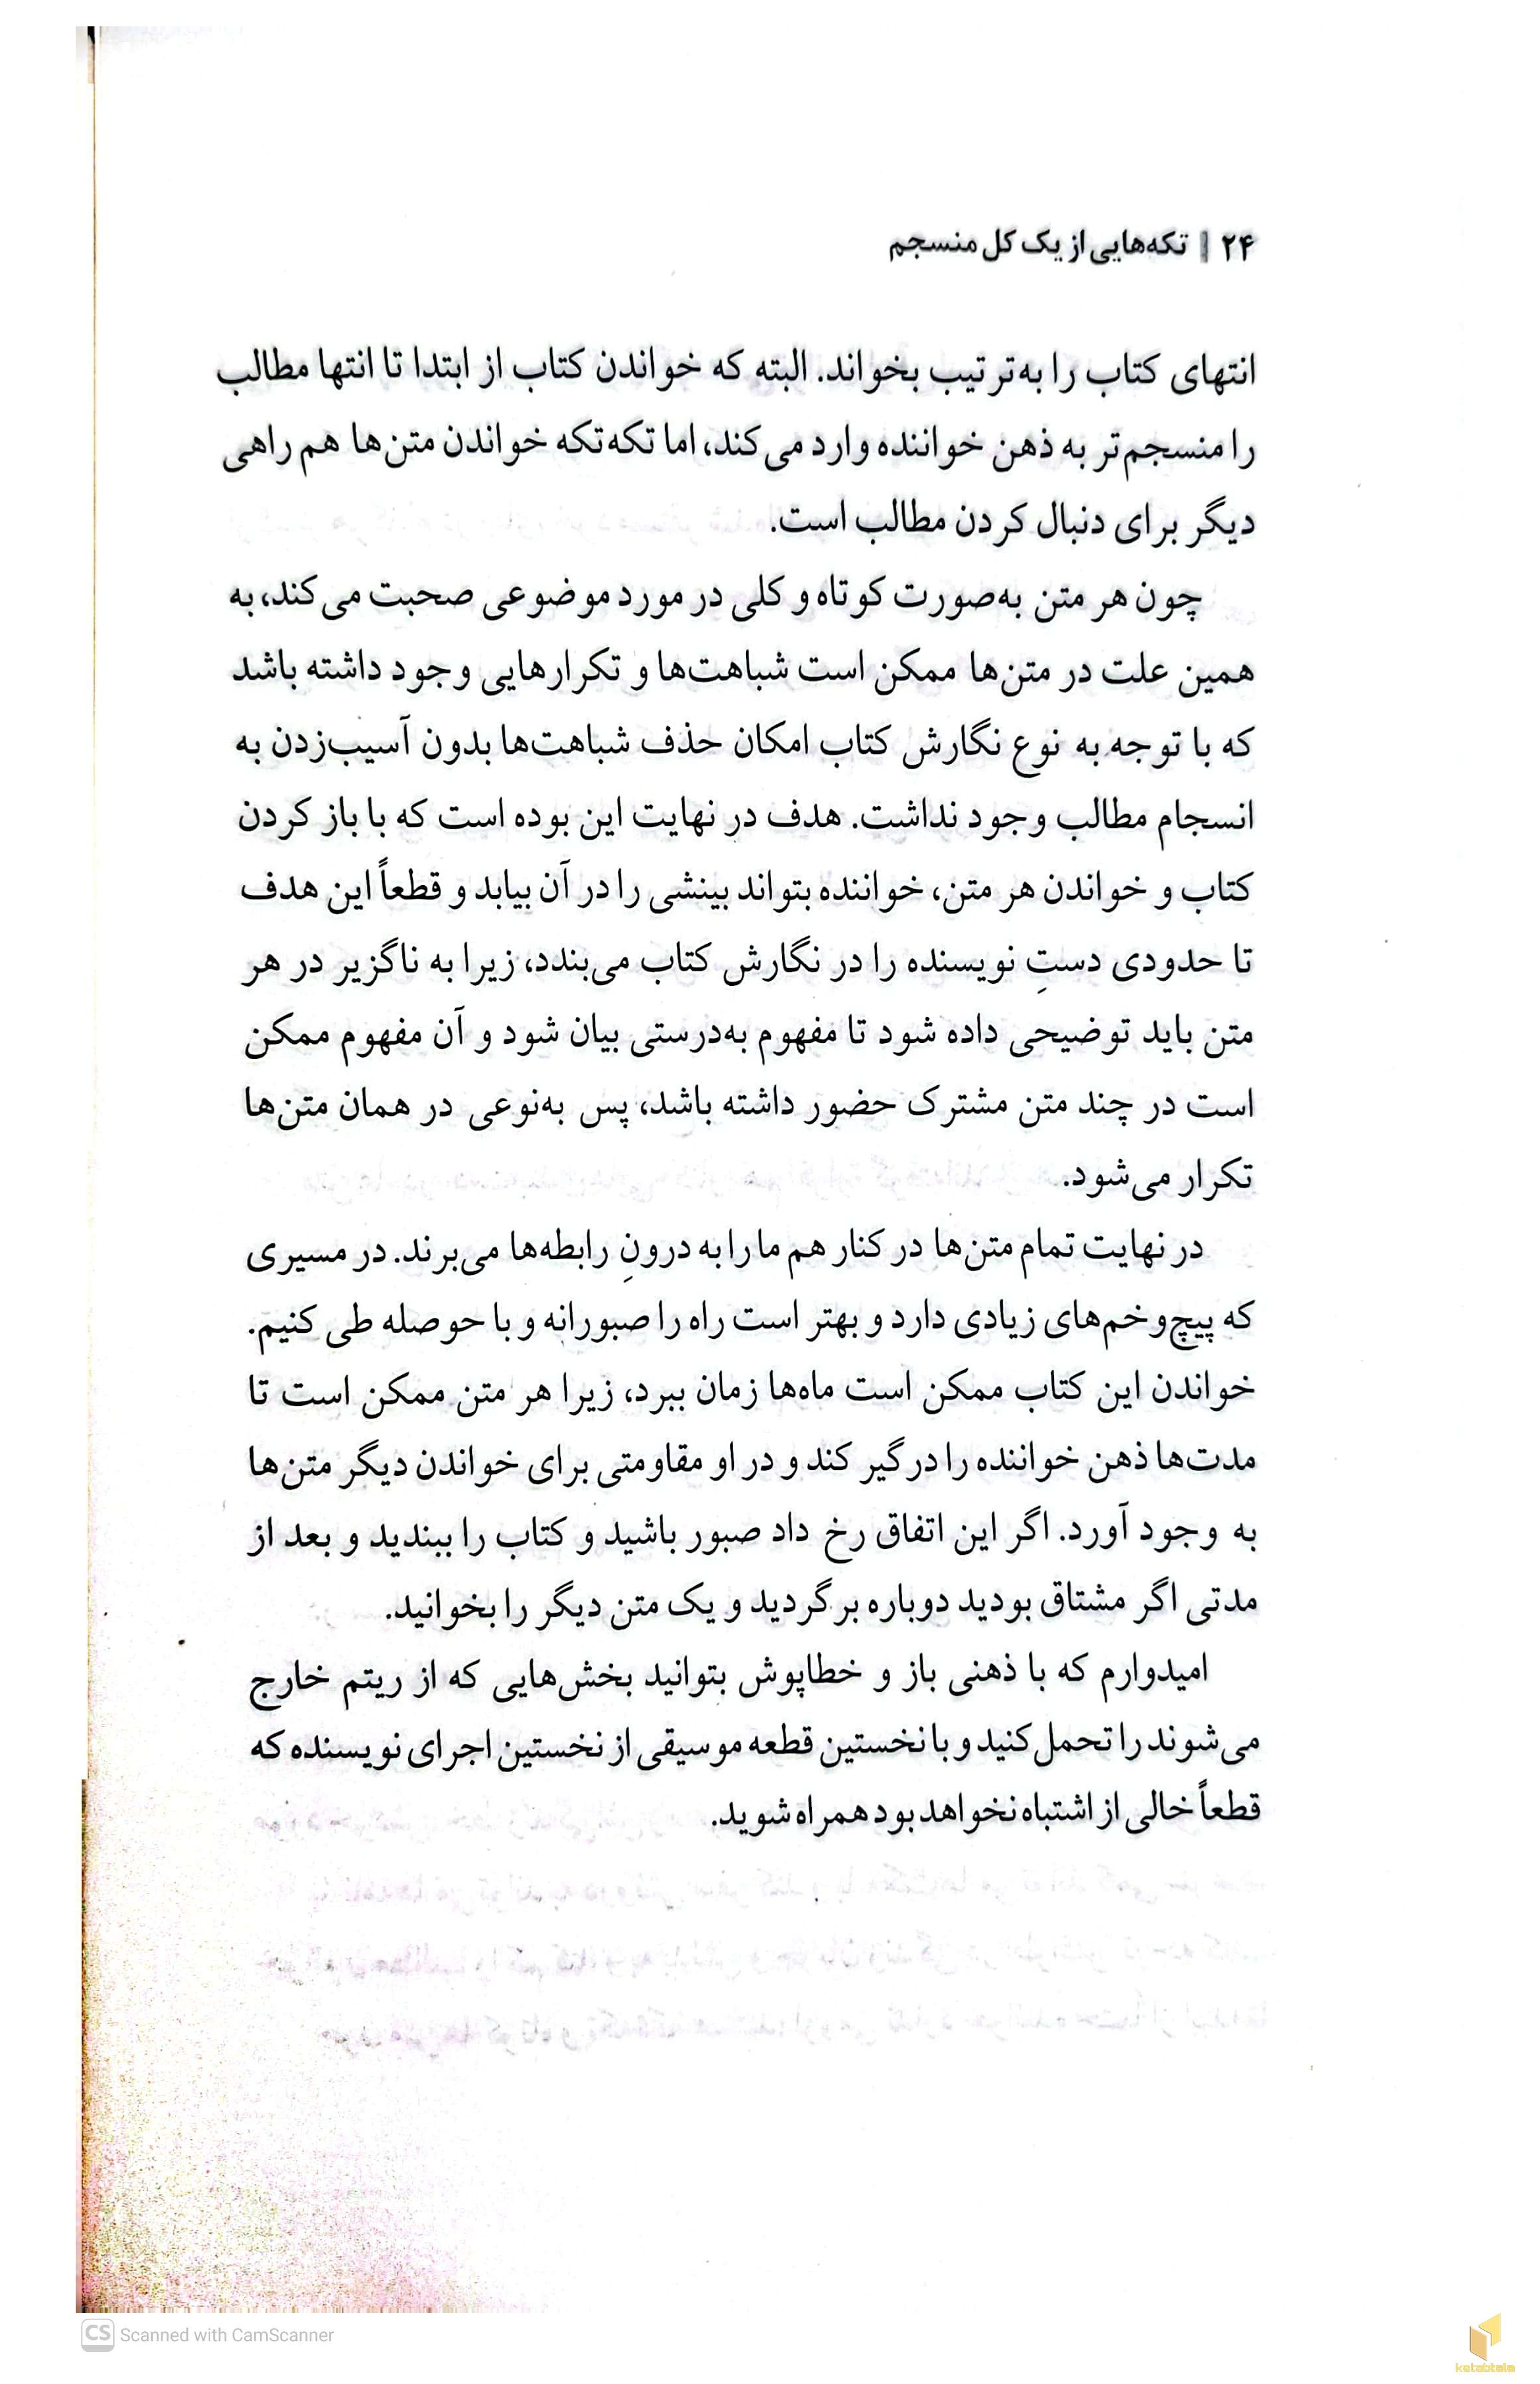 ۲۴ | تکه‌هایی از یک کل منسجم
انتهای کتاب را به‌ترتیب بخواند. البته که خواندن کتاب از ابتدا تا انتها مطالب
را منسجم‌تر به ذهن خواننده وارد می‌کند، اما تکه‌تکه خواندن متن‌ها هم راهی
دیگر برای دنبال کردن مطالب است.
چون هر متن به‌صورت کوتاه و کلی در مورد موضوعی صحبت می‌کند، به
همین علت در متن‌ها ممکن است شباهت‌ها و تکرارهایی وجود داشته باشد
که با توجه به نوع نگارش کتاب امکان حذف شباهت‌ها بدون آسیب‌زدن به
انسجام مطالب وجود نداشت. هدف در نهایت این بوده است که با باز کردن
کتاب و خواندن هر متن، خواننده بتواند بینشی را در آن بیابد و قطعاً این هدف
تا حدودی دستِ نویسنده را در نگارش کتاب می‌بندد، زیرا به ناگزیر در هر
متن باید توضیحی داده شود تا مفهوم به‌درستی بیان شود و آن مفهوم ممکن
است در چند متن مشترک حضور داشته باشد، پس به‌نوعی در همان متن‌ها
تکرار می‌شود.
در نهایت تمام متن‌ها در کنار هم ما را به درونِ رابطه‌ها می‌برند. در مسیری
که پیچ‌وخم‌های زیادی دارد و بهتر است راه را صبورانه و با حوصله طی کنیم.
خواندن این کتاب ممکن است ماه‌ها زمان ببرد، زیرا هر متن ممکن است تا
مدت‌ها ذهن خواننده را درگیر کند و در او مقاومتی برای خواندن دیگر متن‌ها
به وجود آورد. اگر این اتفاق رخ داد صبور باشید و کتاب را ببندید و بعد از
مدتی اگر مشتاق بودید دوباره برگردید و یک متن دیگر را بخوانید.
امیدوارم که با ذهنی باز و خطاپوش بتوانید بخش‌هایی که از ریتم خارج
می‌شوند را تحمل کنید و با نخستین قطعه موسیقی از نخستین اجرای نویسنده که
قطعاً خالی از اشتباه نخواهد بود همراه شوید.
CS Scanned with CamScanner
ketabtala